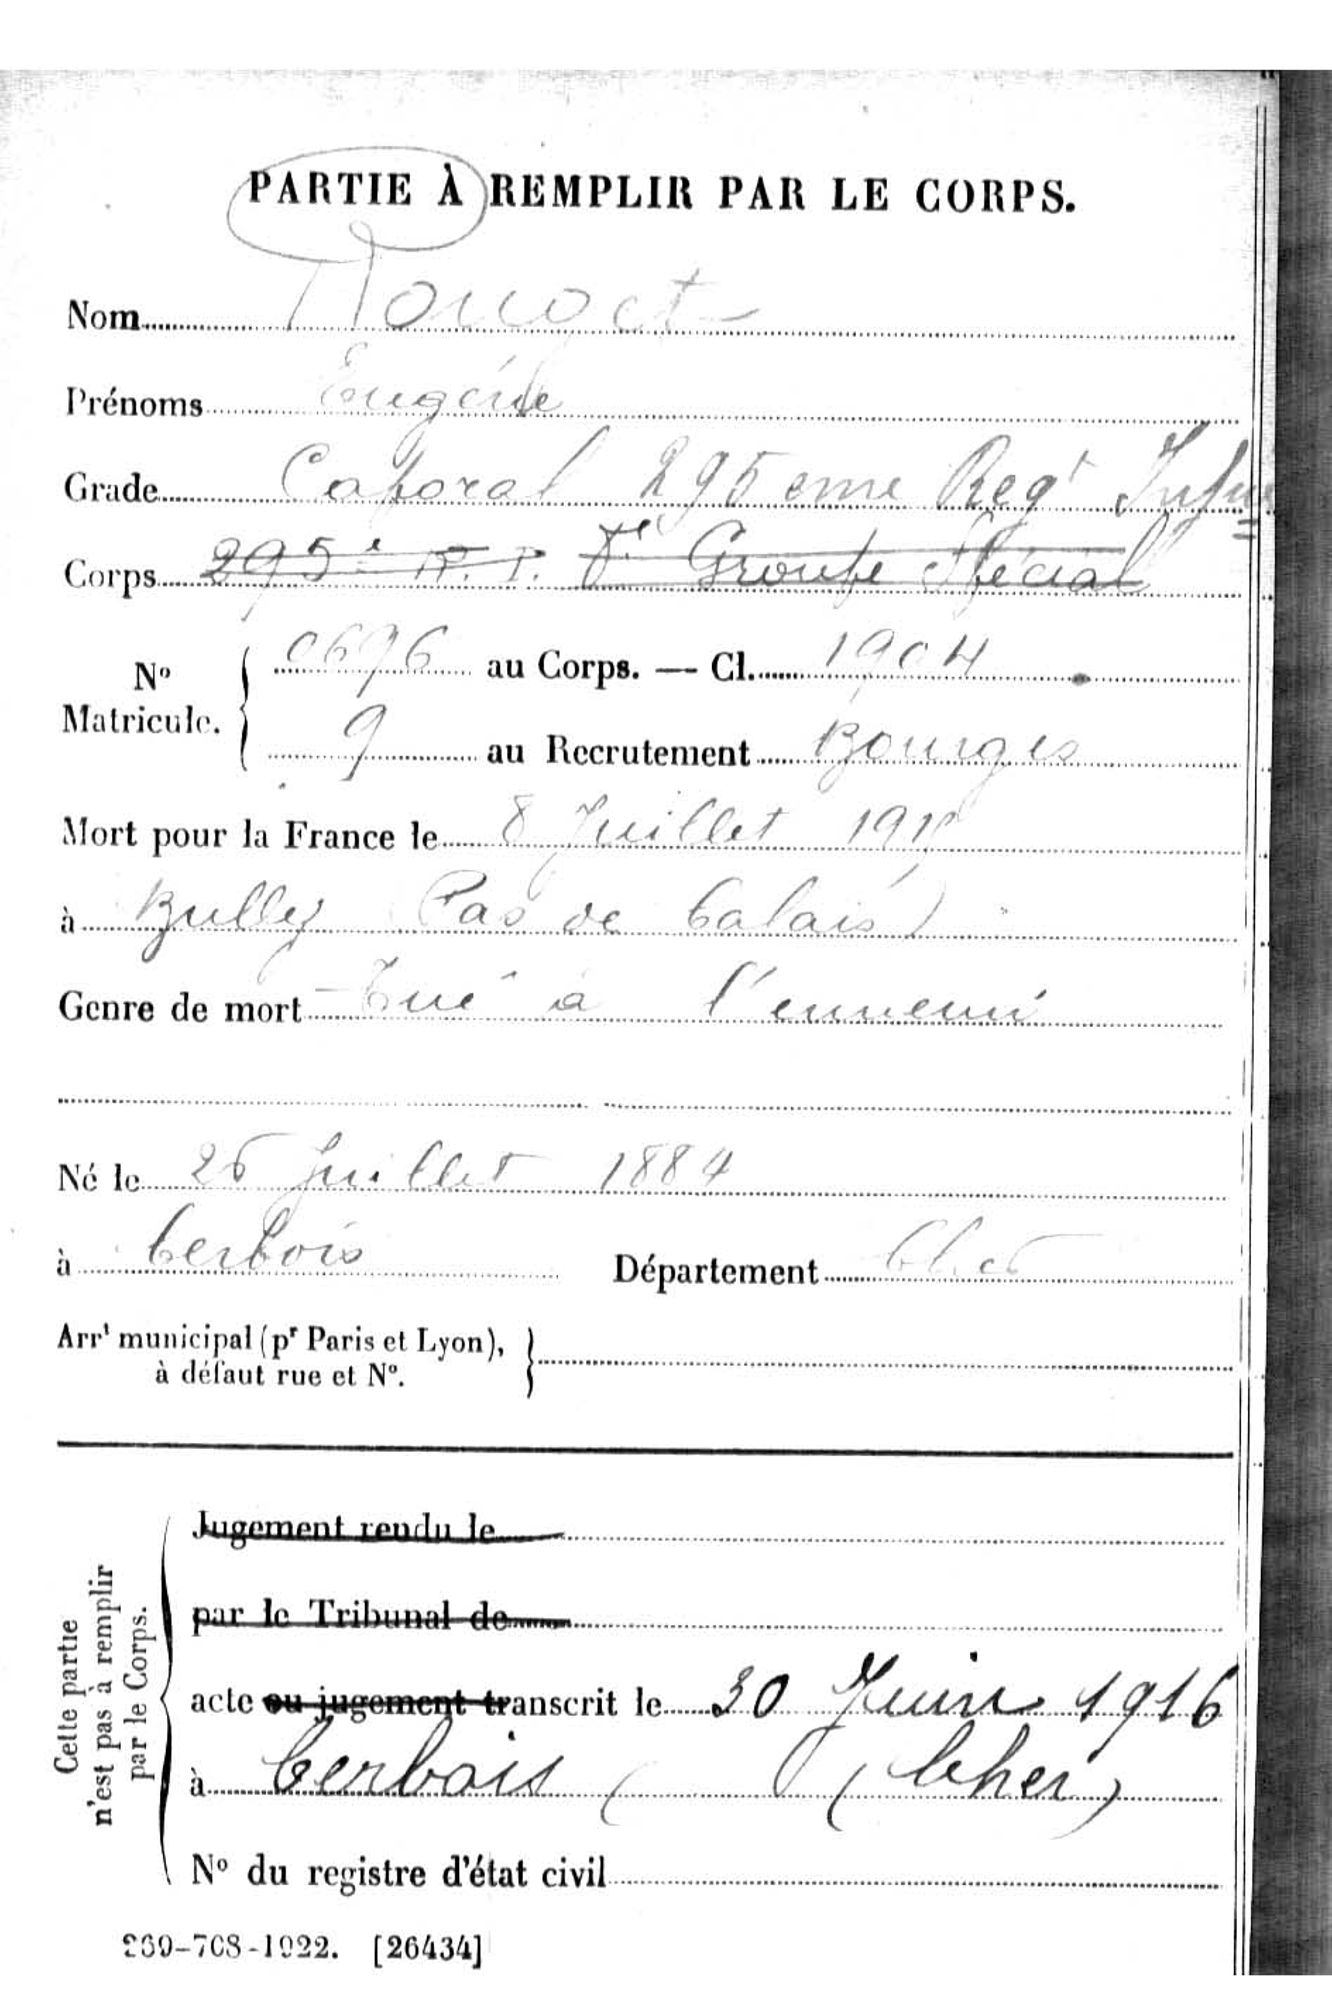 PARTIE À REMPLIR PAR LE CORPS.
Nom
Prénoms Eugène
Grade Caporal 295eme Regt Infie
Corps 295e R. I. Groupe Spécial
No Matricule. 0696 au Corps. — Cl. 1904
9 au Recrutement Bourges
Mort pour la France le 8 Juillet
à Bully (Pas de Calais)
Genre de mort Tué à l'ennemi
Né le 26 Juillet 1884
à Cerbois Département Cher
Arrt municipal (pr Paris et Lyon),
à défaut rue et No.
Cette partie
n'est pas à remplir
par le Corps.
Jugement rendu le
par le Tribunal de
acte ou jugement transcrit le 30 Juin 1916
à Cerbois (Cher)
No du registre d'état civil
269-708-1922. [26434]